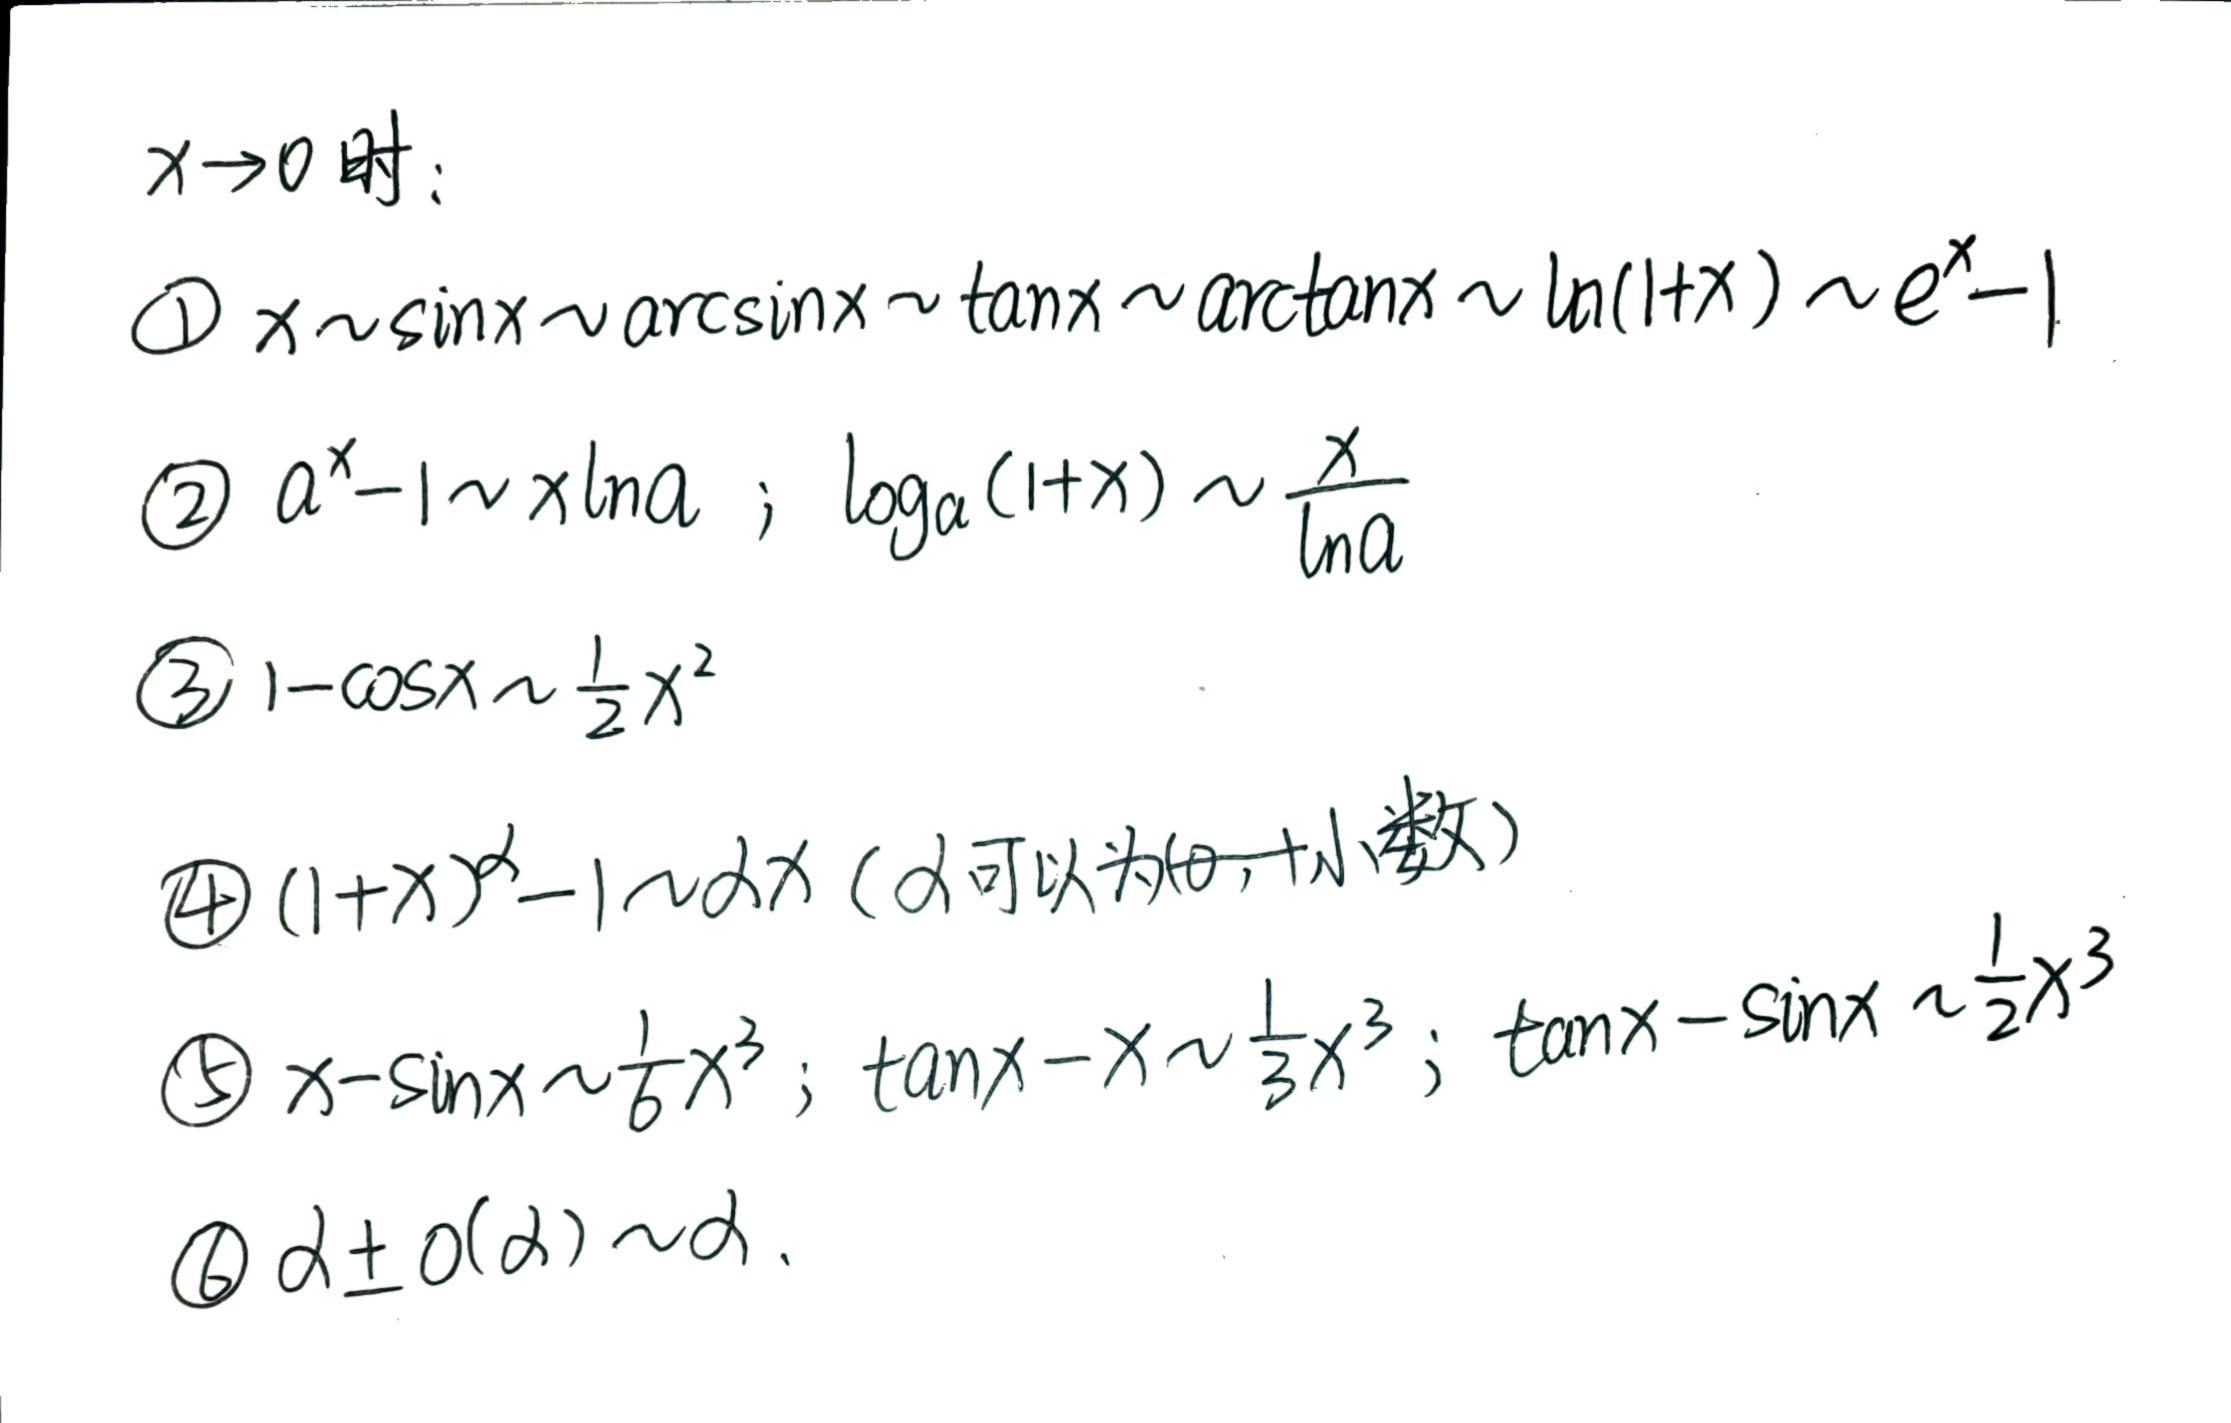 x→0时:
① x~sinx~arcsinx~tanx~arctanx~ln(1+x)~eˣ-1
② aˣ-1~xlna ; logₐ(1+x)~x/lna
③ 1-cosx~1/2 x²
④ (1+x)^α-1~αx (α可以为 小数)
⑤ x-sinx~1/6 x³ ; tanx-x~1/3 x³ ; tanx-sinx~1/2 x³
⑥ α±o(α)~α.